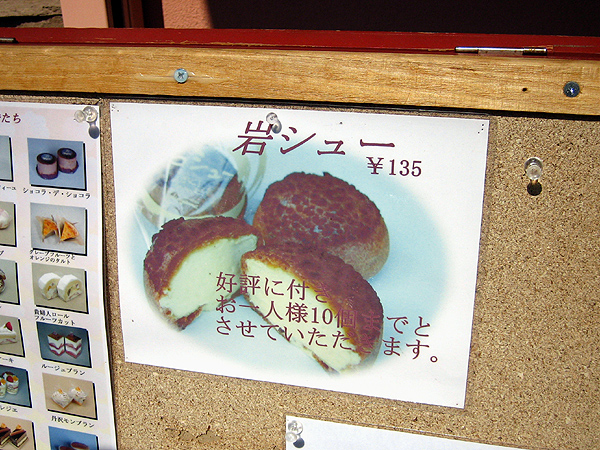 岩シュー
¥135
好評に付き
お一人様10個までと
させていただきます。
たち
ショコラ・デ・ショコラ
クレープフルーツと
オレンジのタルト
貴婦人ロール
フルーツカット
ルージュブラン
丹沢モンブラン